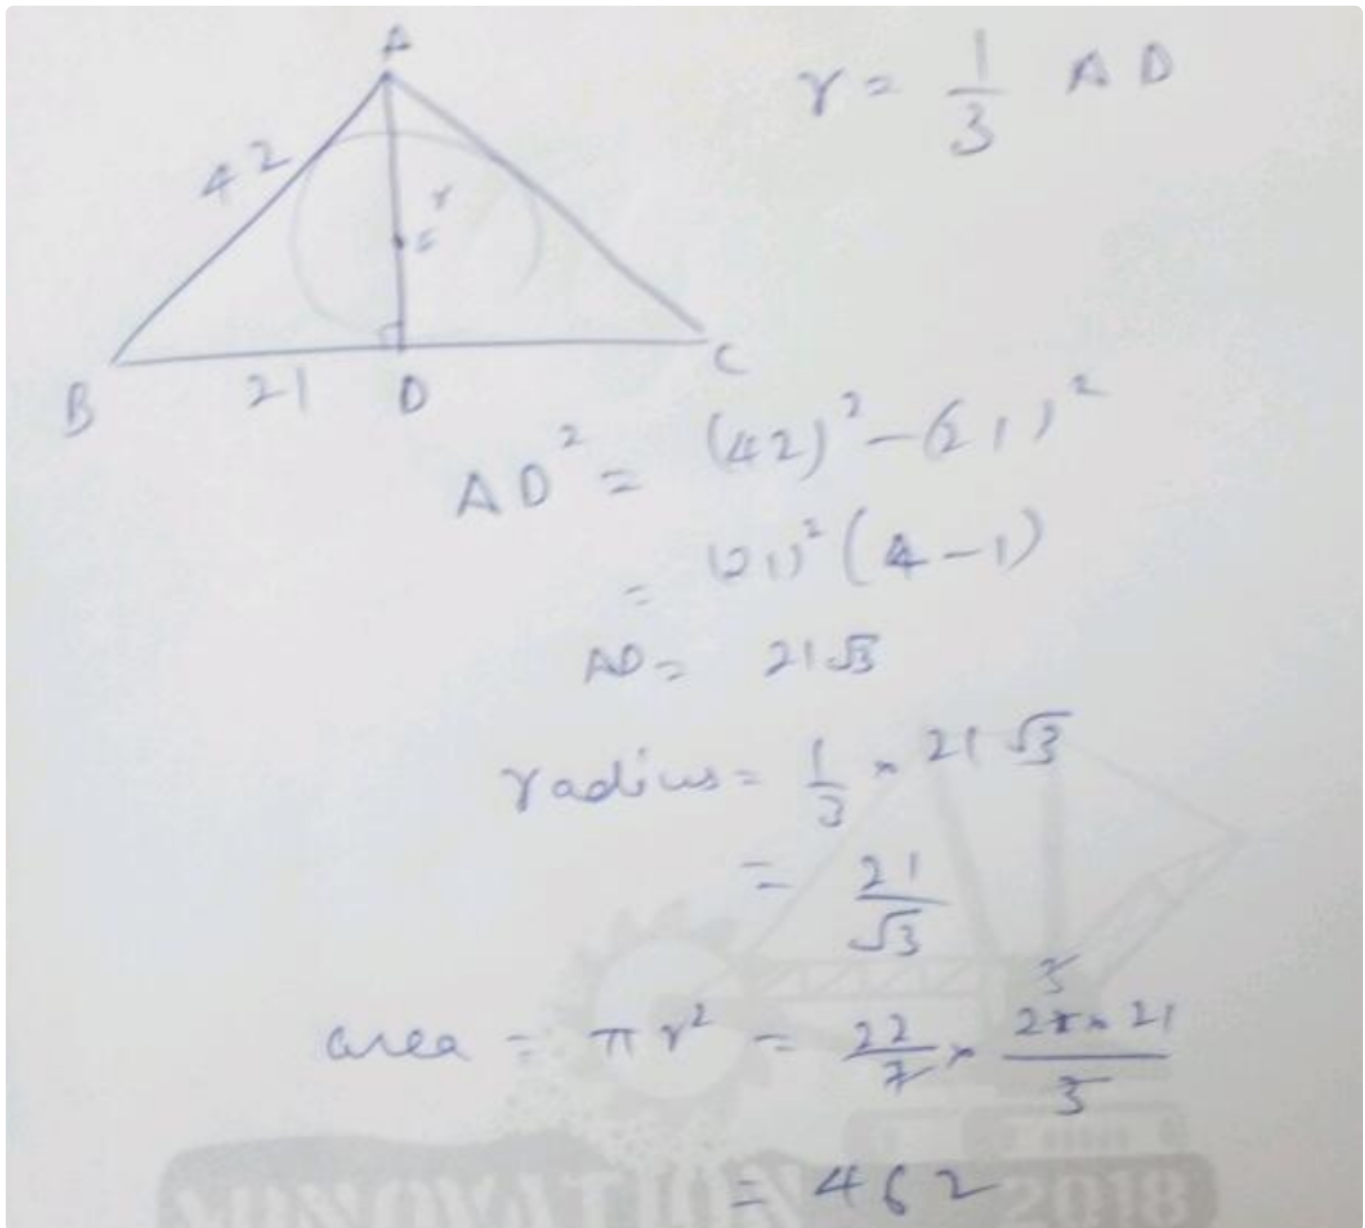 A
r = 1/3 AD
42
r
B 21 D C
AD² = (42)² - (21)²
= (21)² (4 - 1)
AD = 21√3
radius = 1/3 × 21√3
= 21/√3
area = πr² = 22/7 × 21 × 21/3
= 462
2018